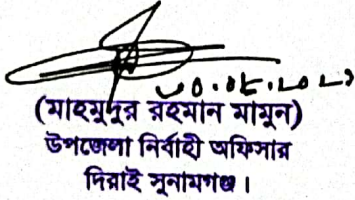 (মাহমুদুর রহমান মামুন)
উপজেলা নির্বাহী অফিসার
দিরাই সুনামগঞ্জ।